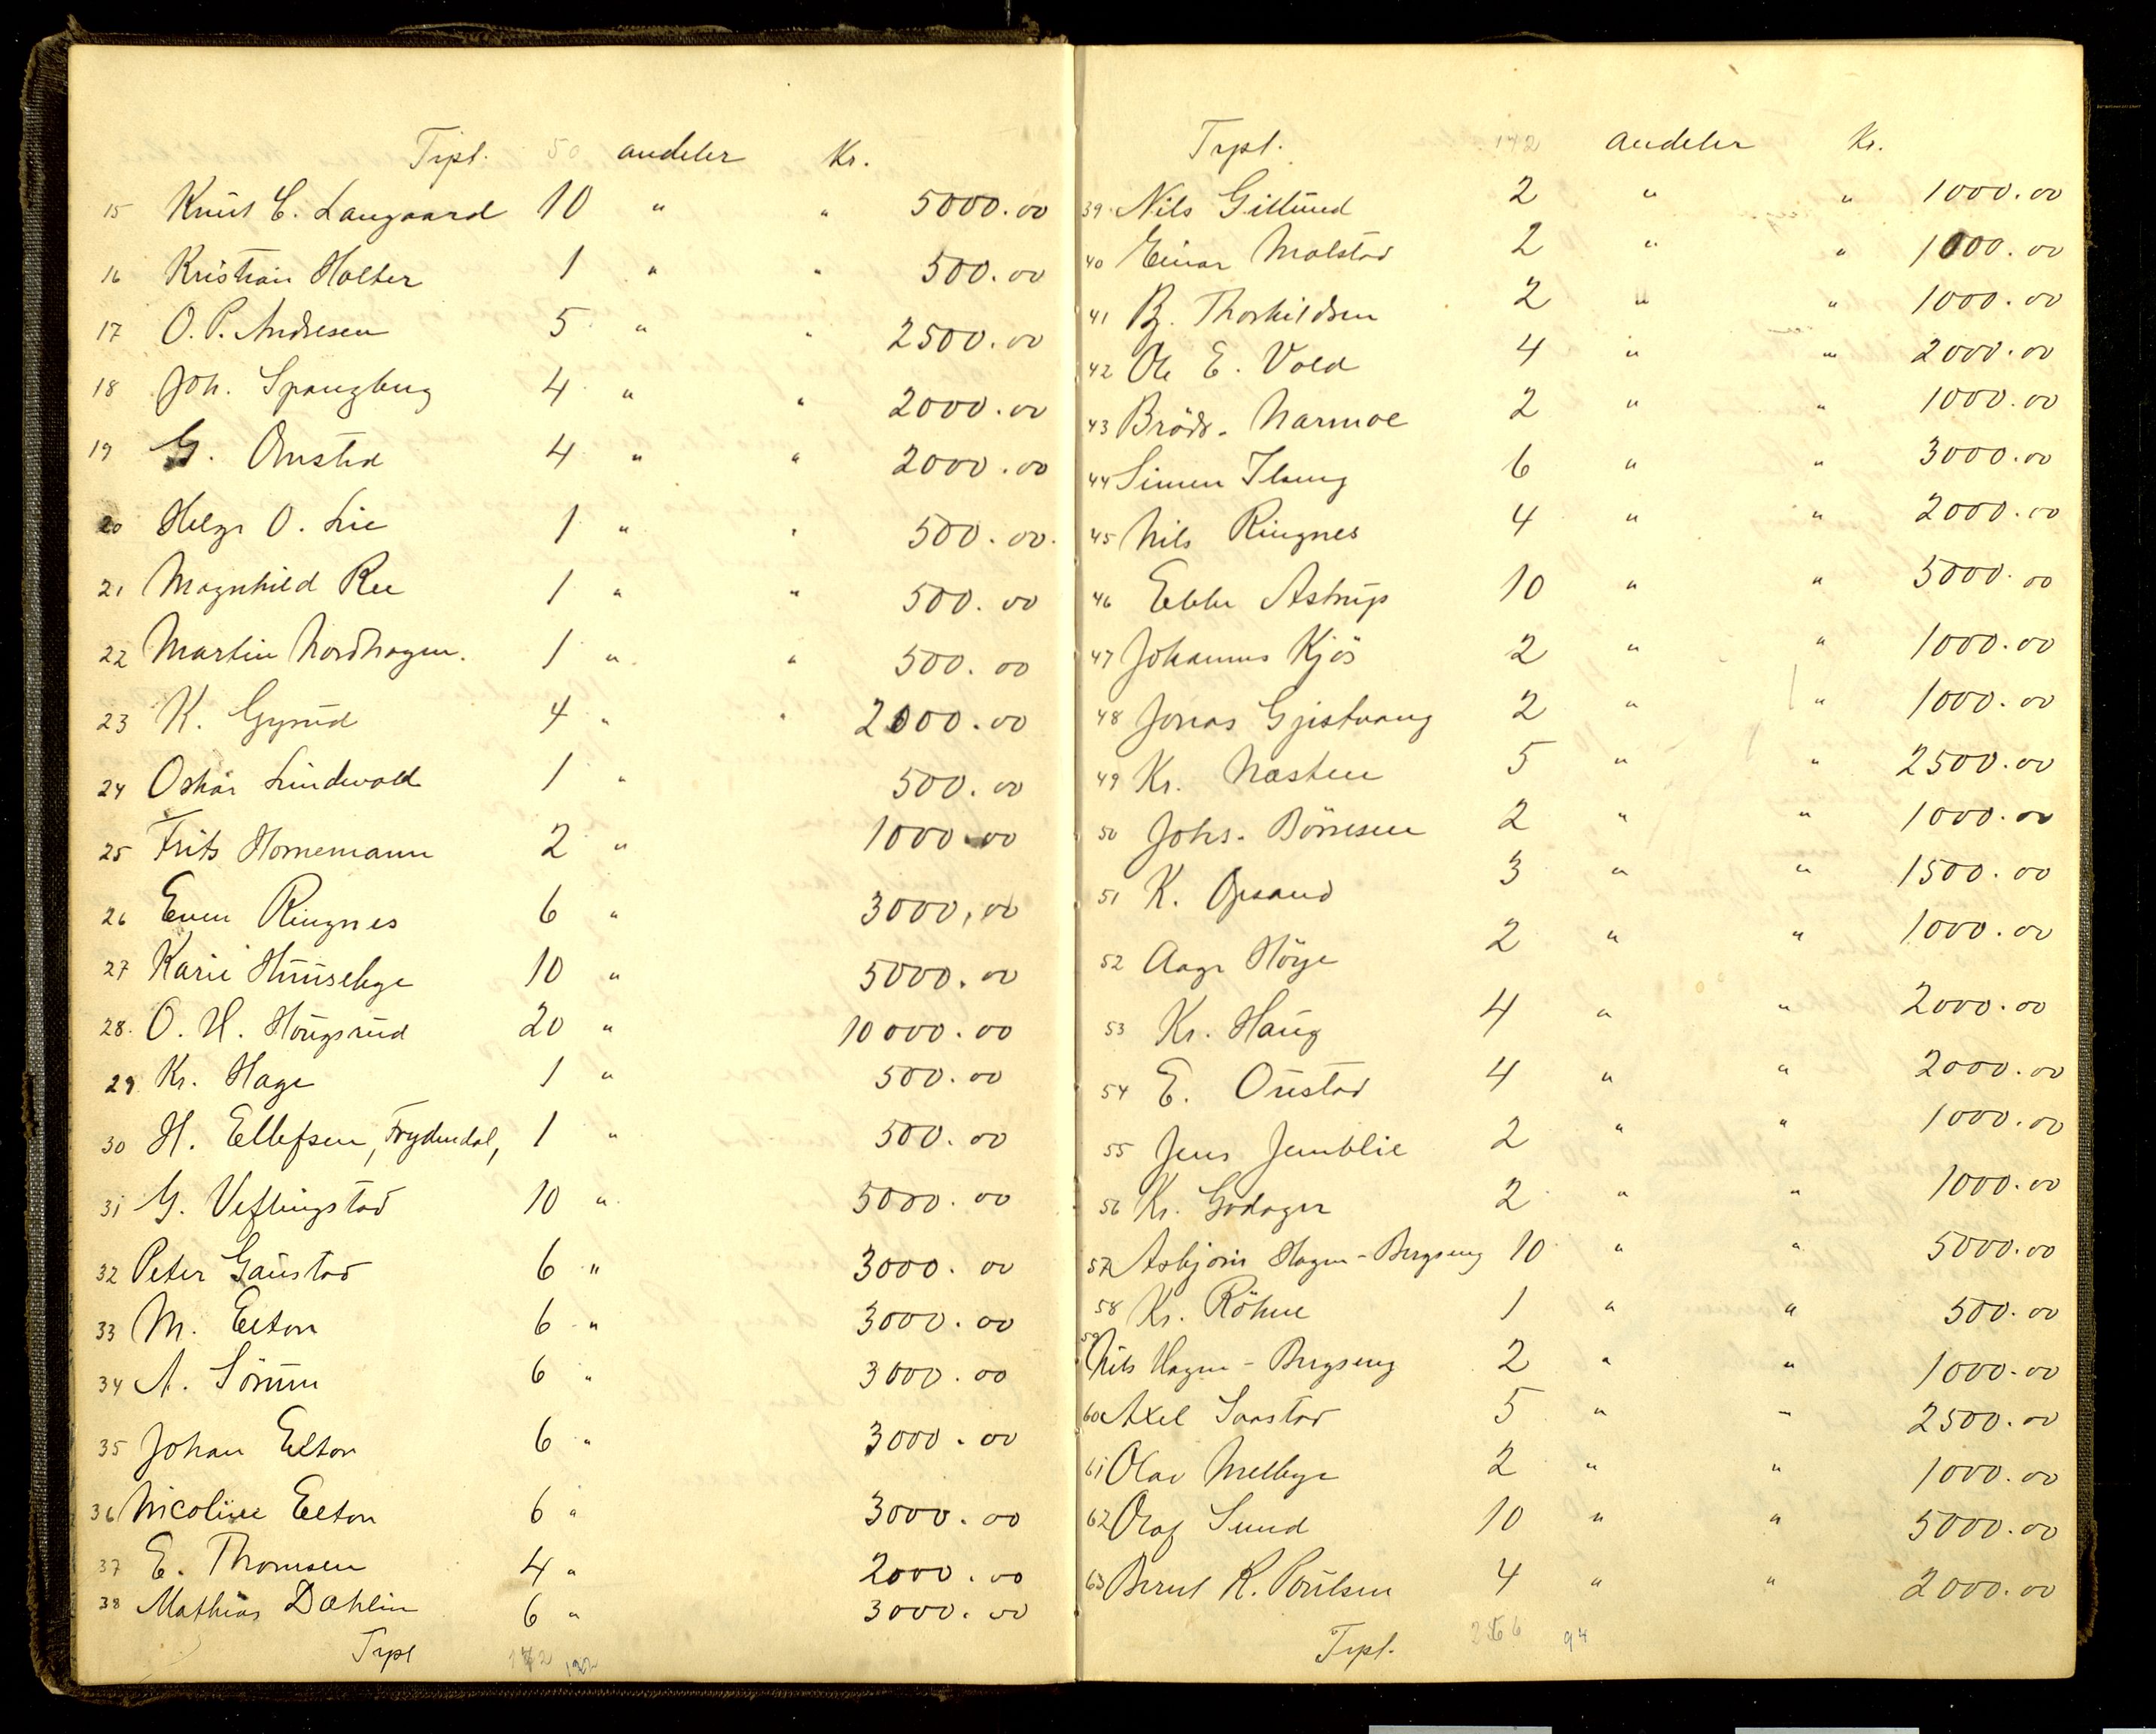 Trpt. 50 andeler Kr.
15 Knut C. Langaard 10 " " 5000.00
16 Kristian Holter 1 " " 500.00
17 O. P. Andresen 5 " " 2500.00
18 Joh. Spangberg 4 " " 2000.00
19 G. Onsted 4 " " 2000.00
20 Helge O. Lie 1 " " 500.00.
21 Magnhild Ree 1 " " 500.00
22 Martin Nordhagen. 1 " " 500.00
23 K. Gyrud 4 " " 2000.00
24 Oskar Lindvold 1 " 500.00
25 Frits Hornemann 2 " 1000.00
26 Even Ringnes 6 " 3000.00
27 Karie Huusebye 10 " 5000.00
28. O. H. Hougsrud 20 " 10000.00
29 Kr. Hage 1 " 500.00
30 H. Ellefsen, Frydendal, 1 " 500.00
31 G. Veflingstad 10 " 5000.00
32 Peter Gaustad 6 " 3000.00
33 M. Elton 6 " 3000.00
34 A. Sörum 6 " 3000.00
35 Johan Elton 6 " 3000.00
36 Nicoline Elton 6 " 3000.00
37 E. Thomsen 4 " 2000.00
38 Mathias Dæhlin 6 " 3000.00
Trpt 172 122
Trpt. 142 andeler Kr.
39. Nils Gillund 2 " " 1000.00
40 Einar Molstad 2 " " 1000.00
41 B. Thorkildsen 2 " " 1000.00
42 Ole E. Vold 4 " " 2000.00
43 Brödr. Narmoe 2 " " 1000.00
44 Simen Ilseng 6 " " 3000.00
45 Nils Ringnes 4 " " 2000.00
46 Ebbe Astrup 10 " " 5000.00
47 Johannes Kjös 2 " " 1000.00
48 Jonas Gjestvang 2 " " 1000.00
49 Kr. Næsten 5 " " 2500.00
50 Johs. Börresen 2 " " 1000.00
51 K. Opsand 3 " " 1500.00
52 Aage Höye 2 " " 1000.00
53 Kr. Haug 4 " " 2000.00
54 E. Onstad 4 " " 2000.00
55 Jens Jemblie 2 " " 1000.00
56 Kr. Godager 2 " " 1000.00
57 Asbjörn Hagen-Bergseng 10 " " 5000.00
58 Kr. Röhne 1 " " 500.00
59 Nils Hagen-Bergseng 2 " " 1000.00
60 Axel Saastad 5 " " 2500.00
61 Olav Melbye 2 " " 1000.00
62 Olaf Sund 10 " " 5000.00
63 Bernt K. Poulsen 4 " " 2000.00
Trpt. 266 94